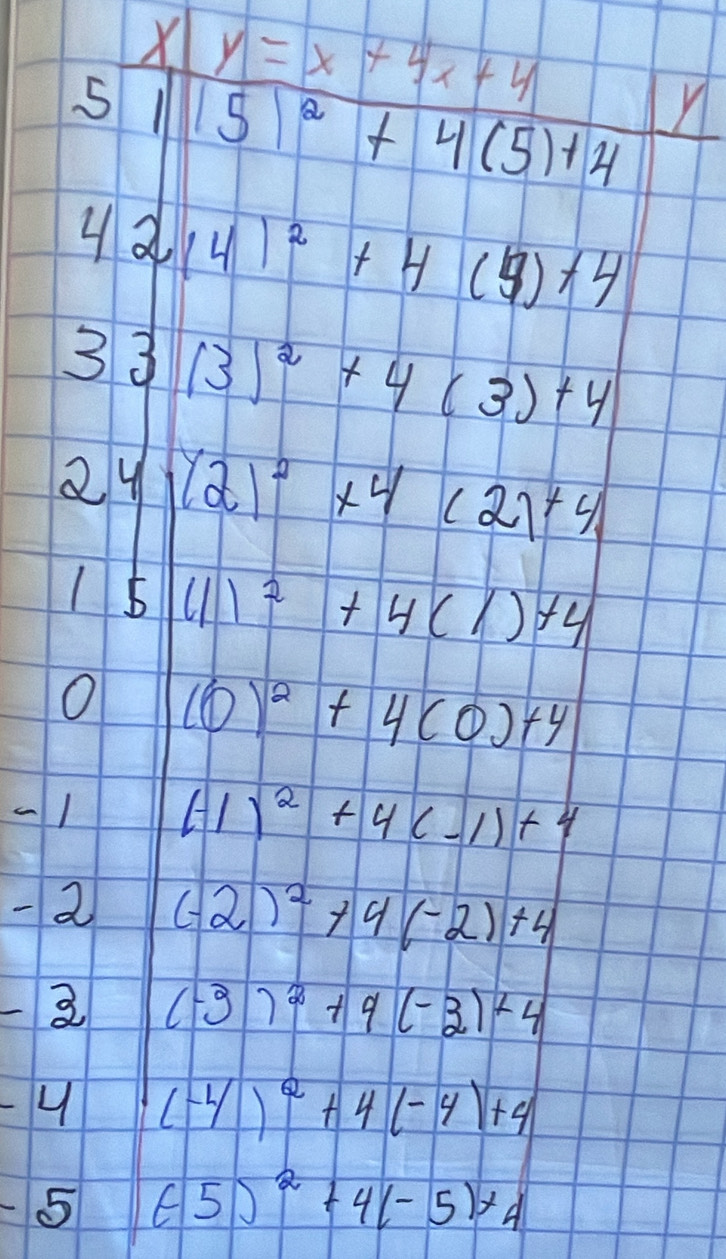 x y = x + 4x + 4 y
5 1 (5)² + 4(5)+4
4 2 (4)² + 4 (4)+4
3 3 (3)² + 4 (3)+4
2 4 (2)² +4 (2)+4
1 5 (1)² + 4(1)+4
0 (0)² + 4(0)+4
-1 (-1)² +4(-1)+4
-2 (-2)² +4(-2)+4
-3 (-3)² +4(-3)+4
-4 (-4)² +4(-4)+4
-5 (-5)² +4(-5)+4